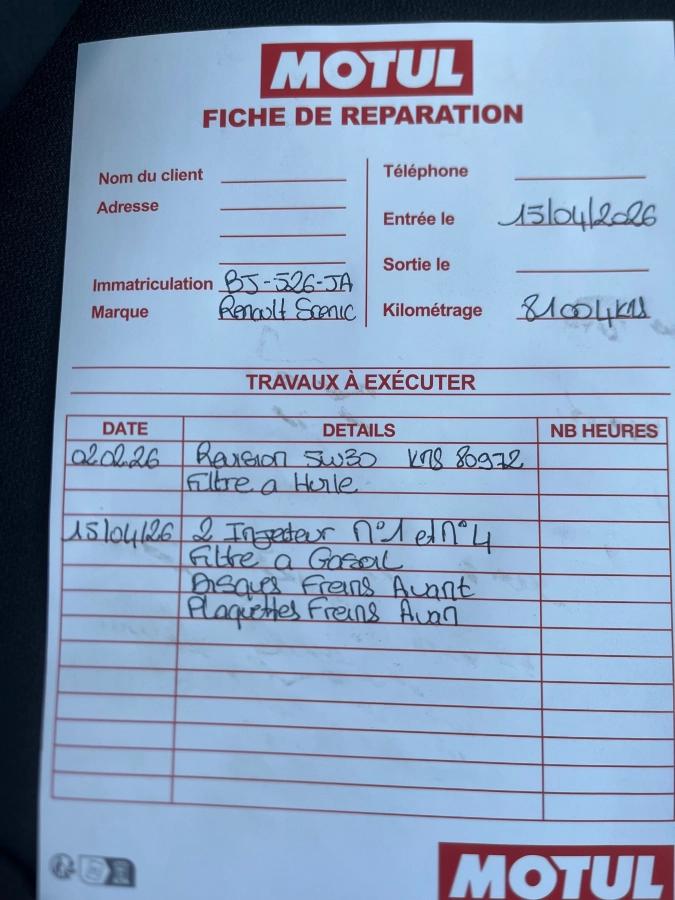 MOTUL
FICHE DE REPARATION
Nom du client
Adresse
Téléphone
Entrée le 15/04/2026
Sortie le
Immatriculation BJ-526-JA
Marque Renault Scenic
Kilométrage 81004 KMS
TRAVAUX À EXÉCUTER
DATE DETAILS NB HEURES
02.02.26 Revision 5W30 KMS 80972
Filtre a Huile
15/04/26 2 Injecteur N°1 et N°4
Filtre a Gasoil
Disques Freins Avant
Plaquettes Freins Avan
MOTUL